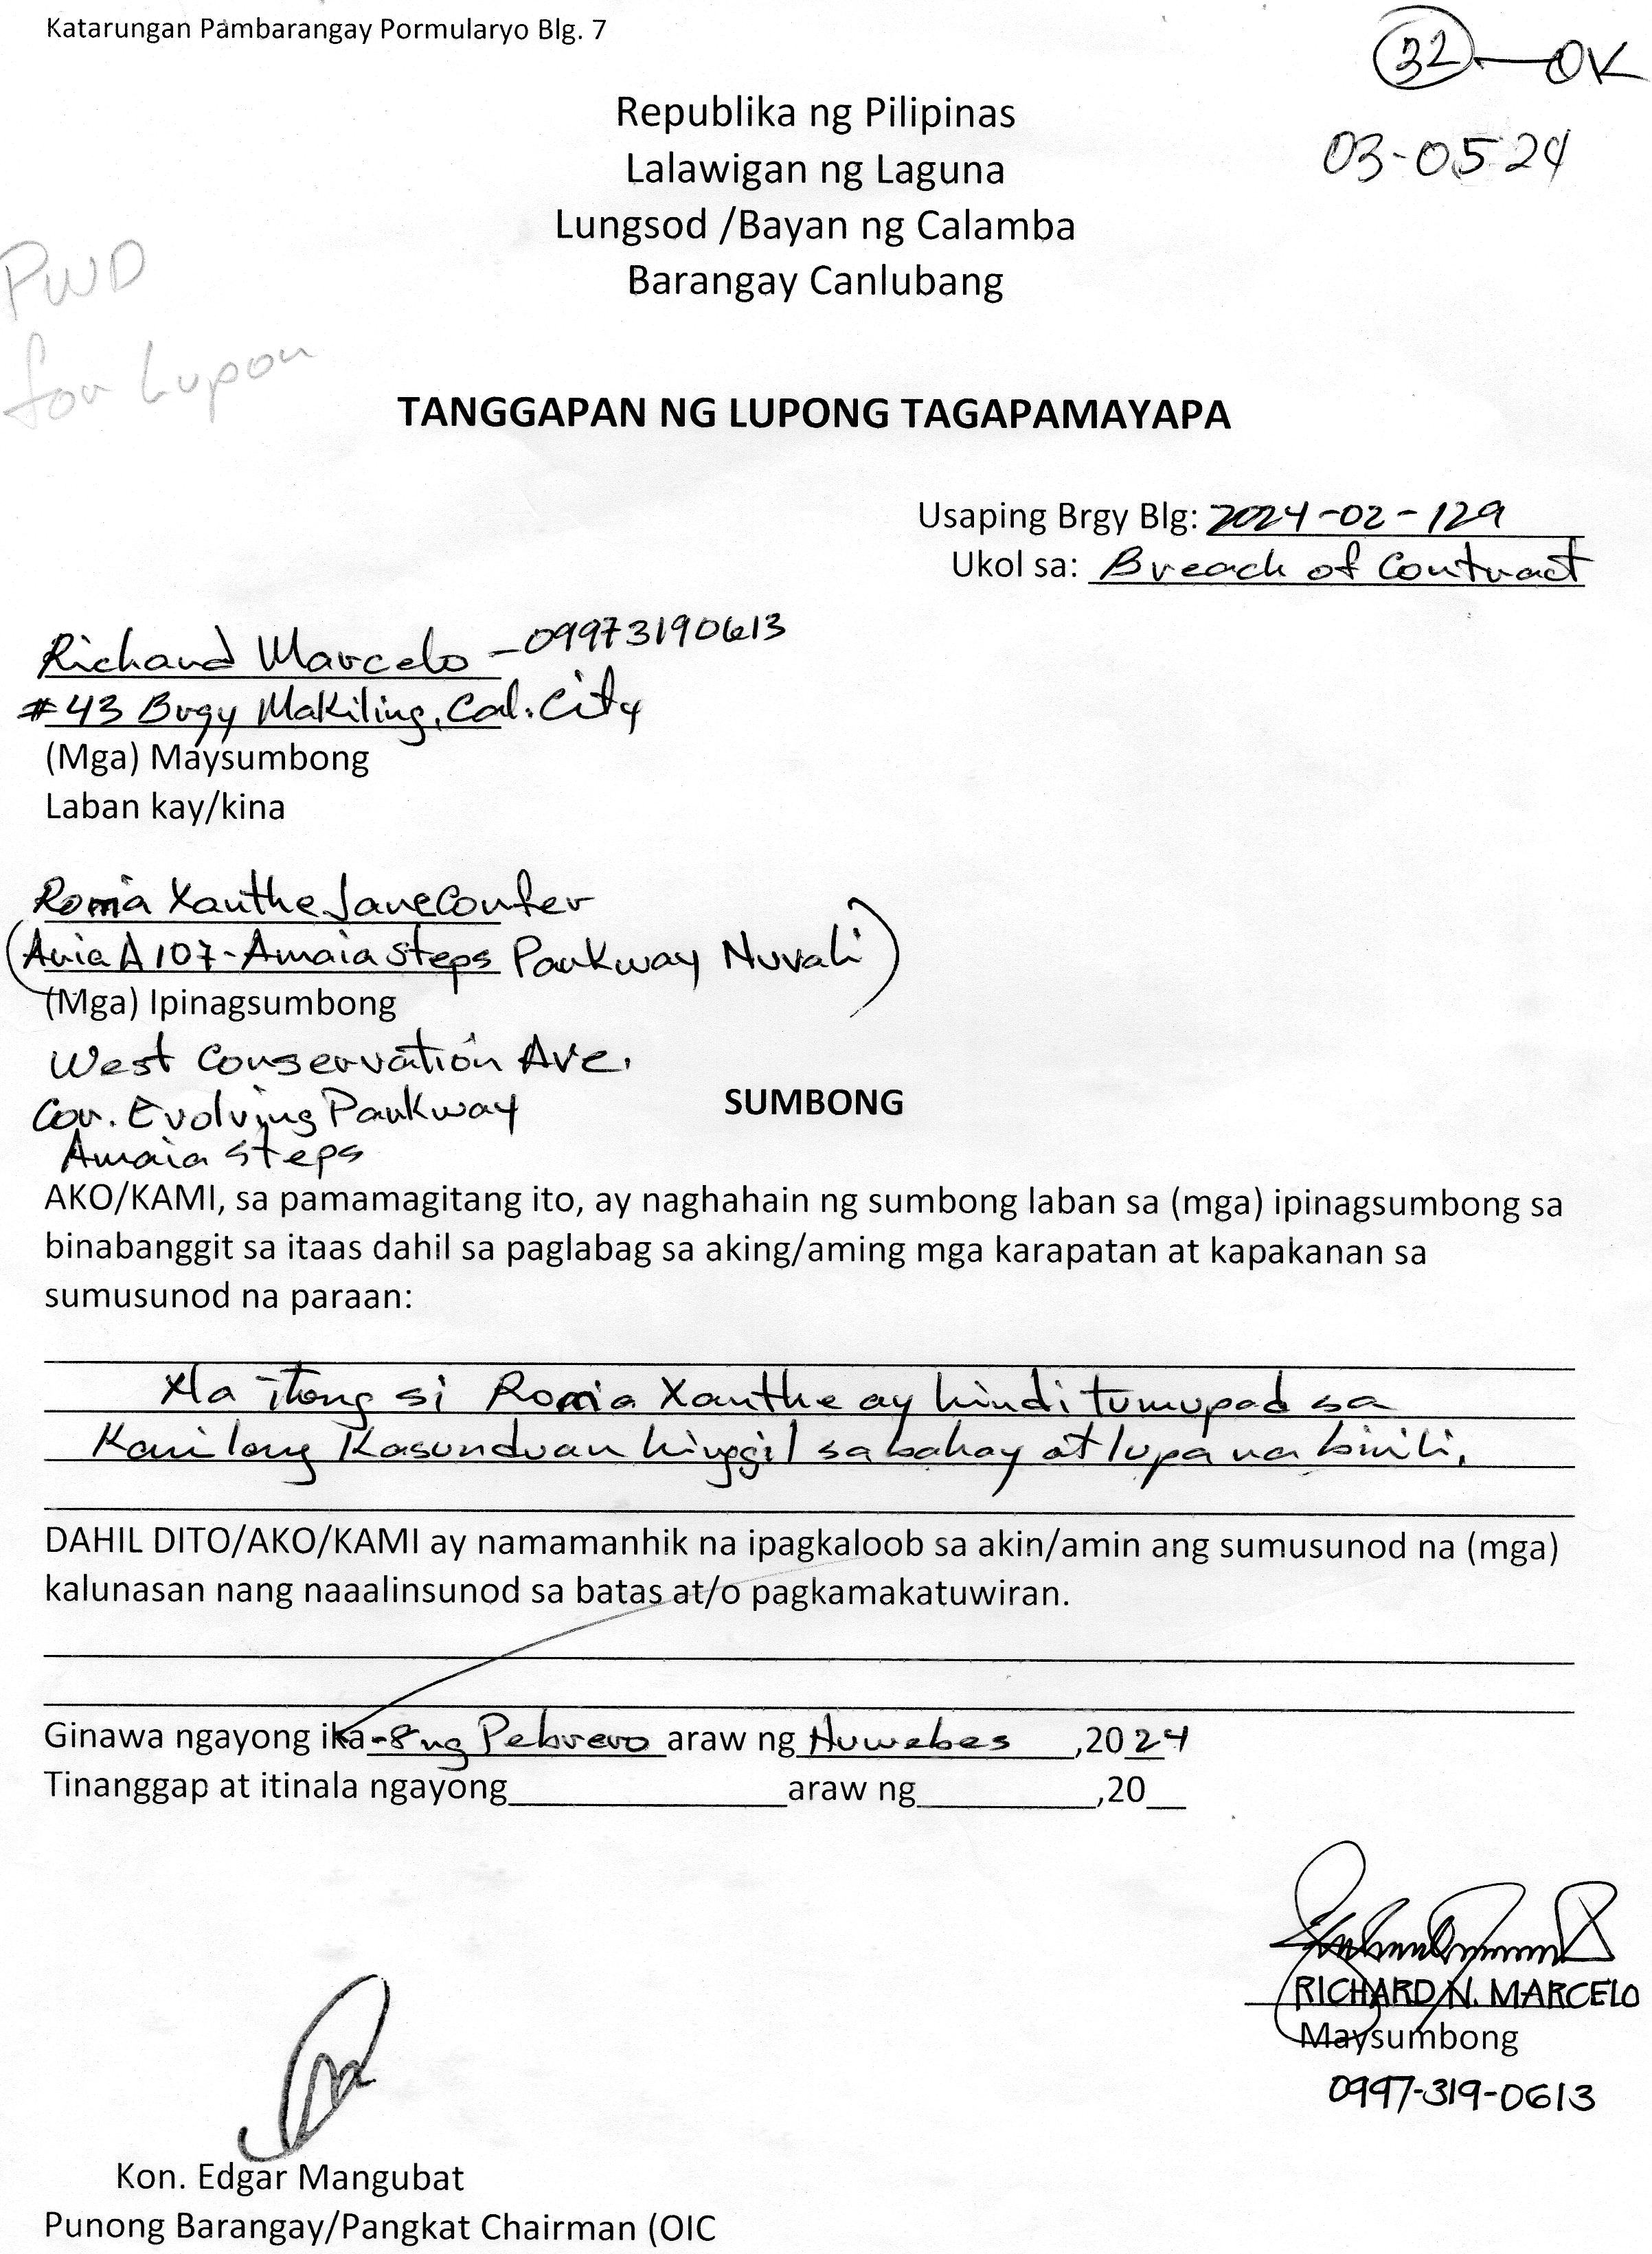 Katarungan Pambarangay Pormularyo Blg. 7
32 OK
03-05 24
Republika ng Pilipinas
Lalawigan ng Laguna
Lungsod /Bayan ng Calamba
Barangay Canlubang
PWD
for Lupon
TANGGAPAN NG LUPONG TAGAPAMAYAPA
Usaping Brgy Blg: 2024-02-129
Ukol sa: Breach of Contract
Richard Marcelo - 09973190613
#43 Brgy Makiling, Cal. City
(Mga) Maysumbong
Laban kay/kina
Romia Xanthe Jane Confer
(Aria A 107-Amaia Steps Parkway Nuvali)
(Mga) Ipinagsumbong
West Conservation Ave.
Cor. Evolving Parkway
Amaia steps
SUMBONG
AKO/KAMI, sa pamamagitang ito, ay naghahain ng sumbong laban sa (mga) ipinagsumbong sa
binabanggit sa itaas dahil sa paglabag sa aking/aming mga karapatan at kapakanan sa
sumusunod na paraan:
Na itong si Romia Xanthe ay hindi tumupad sa
Kanilang Kasunduan hinggil sa bahay at lupa na binili.
DAHIL DITO/AKO/KAMI ay namamanhik na ipagkaloob sa akin/amin ang sumusunod na (mga)
kalunasan nang naaalinsunod sa batas at/o pagkamakatuwiran.
Ginawa ngayong ika-8 ng Pebrero araw ng Huwebes ,2024
Tinanggap at itinala ngayong______________araw ng_________,20__
RICHARD N. MARCELO
Maysumbong
0997-319-0613
Kon. Edgar Mangubat
Punong Barangay/Pangkat Chairman (OIC